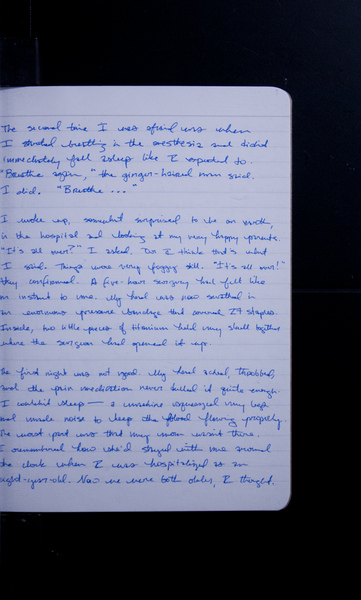 The second time I was afraid was when
I started breathing in the anesthesia and didn't
immediately fall asleep like I expected to.
"Breathe again," the ginger-haired man said.
I did. "Breathe ..."
I woke up, somewhat surprised to be on earth,
in the hospital and looking at my very happy parents.
"It's all over?" I asked. Or I think that's what
I said. Things were very foggy still. "It's all over!"
they confirmed. A five-hour surgery had felt like
an instant to me. My head was now swathed in
an enormous pressure bandage that covered 29 staples.
Inside, two little pieces of titanium held my skull together
where the surgeon had opened it up.
The first night was not good. My head ached, throbbed,
and the pain medication never dulled it quite enough.
I couldn't sleep — a machine squeezed my legs
and made noise to keep the blood flowing properly.
The worst part was that my mom wasn't there.
I remembered how she'd stayed with me around
the clock when I was hospitalized as an
eight-year-old. Now we were both older, I thought.